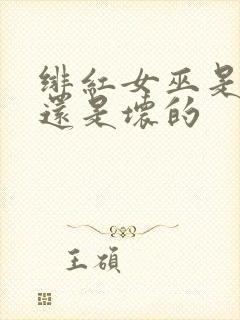 緋紅女巫是
還是壞的
王碩